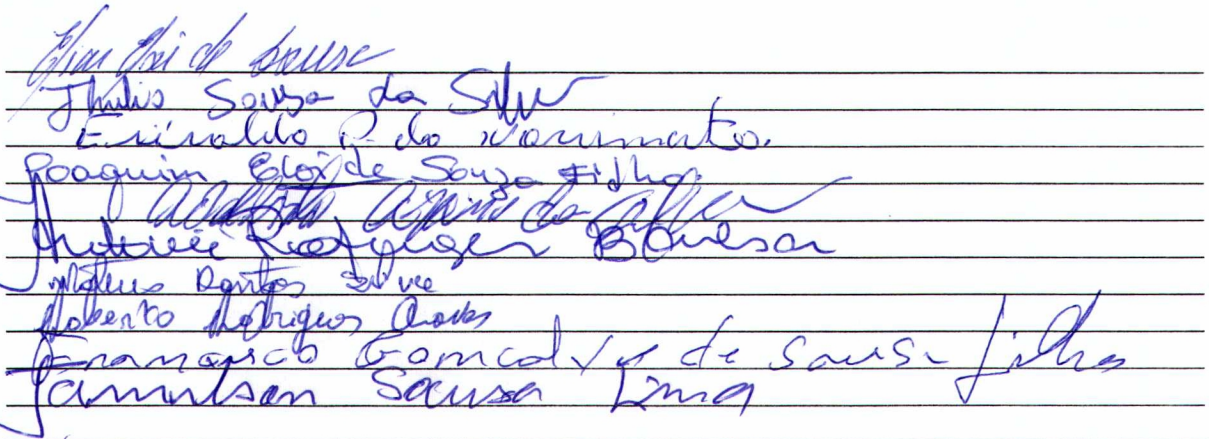 de Sousa
Thulio Sousa da Silva
Erinaldo P. do Nascimento.
Joaquim Eloi de Souza Filho
da Silva
Rodrigues Barbosa
Mateus Dantas Silva
Roberto Rodrigues Chaves
Francisco Gomcalves de Sousa filho
Jamilson Sousa Lima